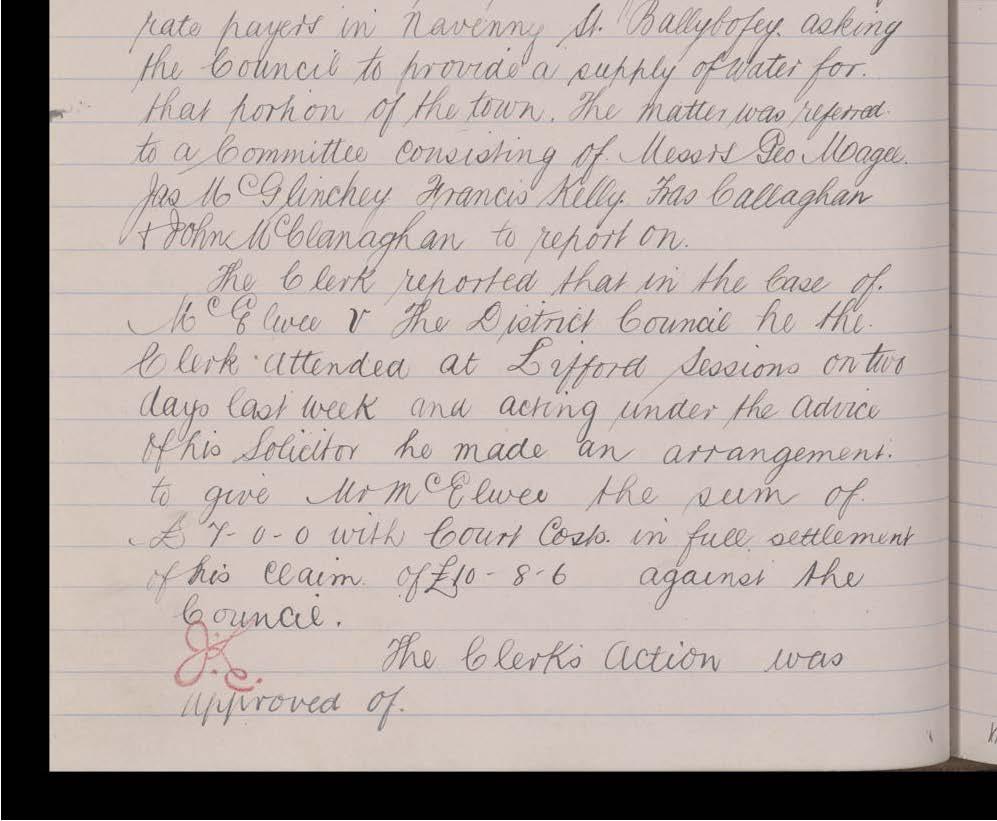 rate payers in Navenny St. Ballybofey. asking
the Council to provide a supply of Water for.
that portion of the town. The matter was referred.
to a Committee consisting of. Messrs Geo Magee.
Jas McGlinchey Francis Kelly. Fras Callaghan
+ John McClanaghan to report on.
The Clerk reported that in the Case of.
McElwee V The District Council he the.
Clerk attended at Lifford Sessions on two
days last week and acting under the advice
of his Solicitor he made an arrangement.
to give Mr McElwee the sum of.
£ 7-0-0 with Court Costs. in full settlement
of his Claim of £10-8-6 against the
Council.
The Clerks Action was
approved of.